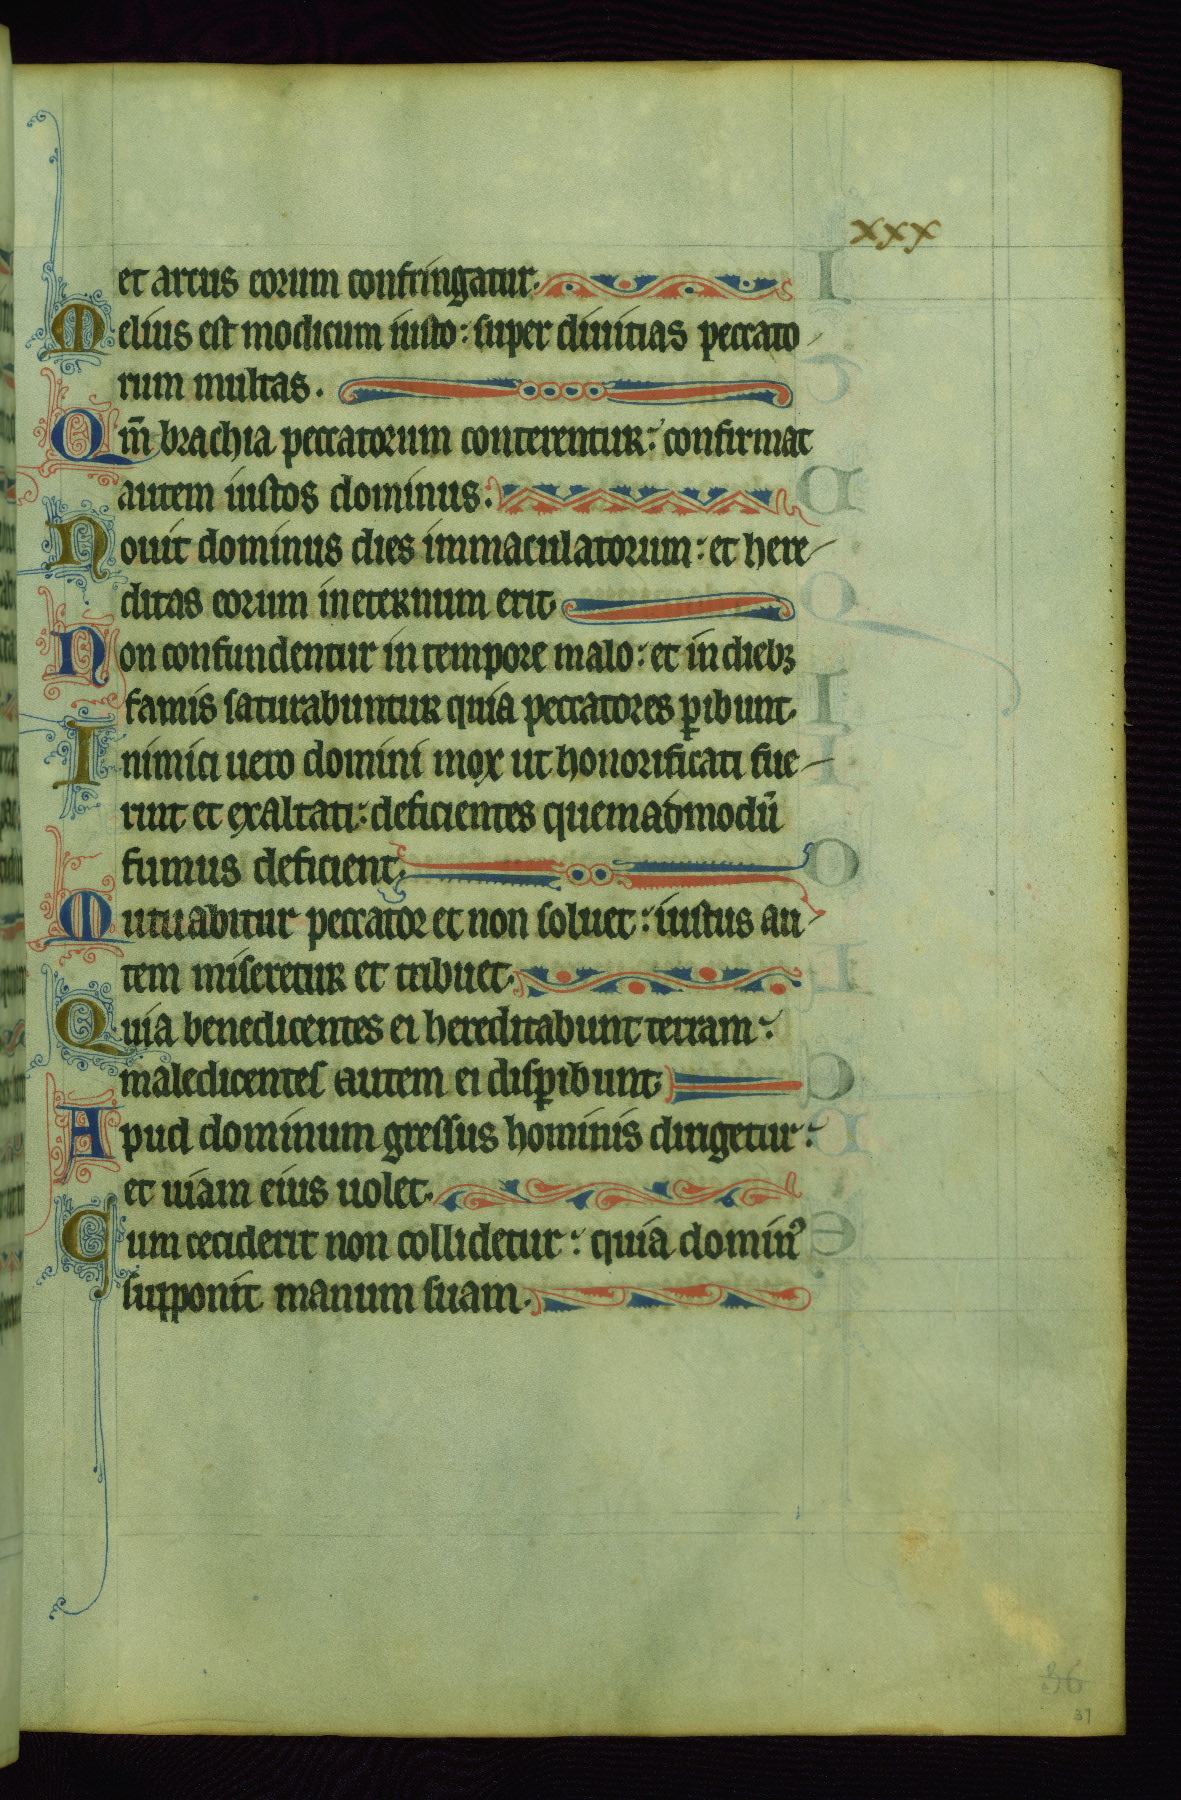 xxx
et arcus eorum confringatur.
Melius est modicum iusto: super diuitias peccato
rum multas.
Qm̄ brachia peccatorum conterentur: confirmat
autem iustos dominus:
Nouit dominus dies immaculatorum: et here
ditas eorum in eternum erit.
Non confundentur in tempore malo: et in diebꝫ
famis saturabuntur quia peccatores ꝑibunt.
Inimici uero domini mox ut honorificati fue
rint et exaltati: deficientes quemadmodū
fumus deficient.
Mutuabitur peccator et non soluet: iustus au
tem miseretur et tribuet.
Quia benedicentes ei hereditabunt terram:
maledicentes autem ei disꝑibunt.
Apud dominum gressus hominis dirigetur:
et uiam eius uolet.
Cum ceciderit non collidetur: quia dominꝰ
supponit manum suam.
36
37